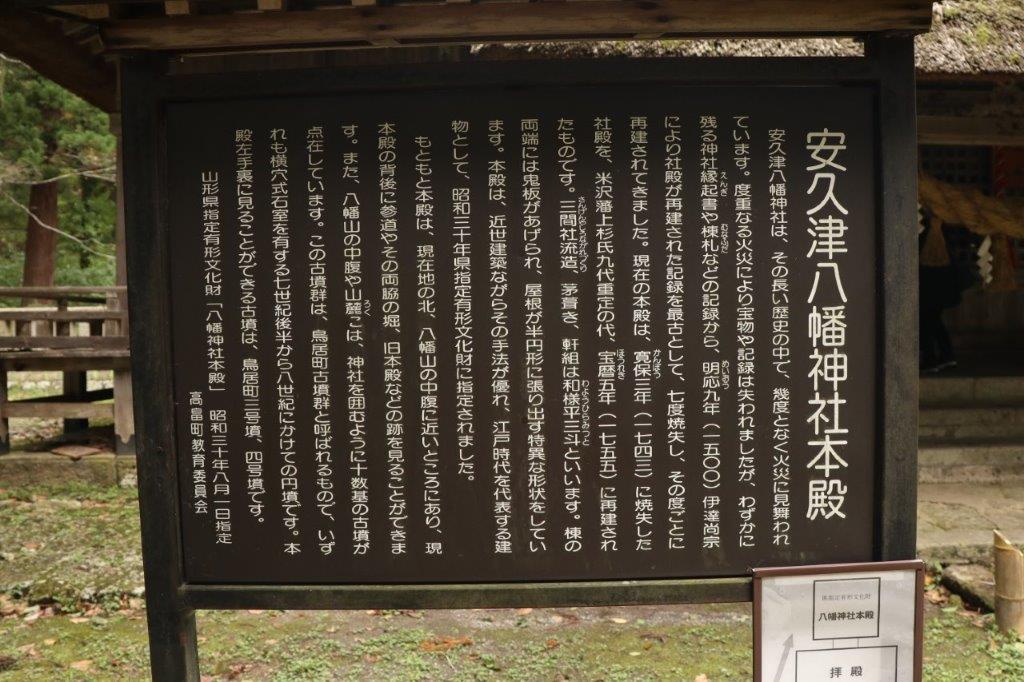 安久津八幡神社本殿
安久津八幡神社は、その長い歴史の中で、幾度となく火災に見舞われ
ています。度重なる火災により宝物や記録は失われましたが、わずかに
残る神社縁起書や棟札などの記録から、明応九年（一五〇〇）伊達尚宗
えんぎ
むなふだ
めいおう
により社殿が再建された記録を最古として、七度焼失し、その度ごとに
再建されてきました。現在の本殿は、寛保三年（一七四三）に焼失した
かんぽう
社殿を、米沢藩上杉氏九代重定の代、宝暦五年（一七五五）に再建され
ほうれき
たものです。三間社流造、茅葺き、軒組は和様平三斗といいます。棟の
さんげんやしろながれづくり
わようひらみつと
両端には鬼板があげられ、屋根が半円形に張り出す特異な形状をしてい
ます。本殿は、近世建築ながらその手法が優れ、江戸時代を代表する建
物として、昭和三十年県指定有形文化財に指定されました。
もともと本殿は、現在地の北、八幡山の中腹に近いところにあり、現
本殿の背後に参道やその両脇の堀、旧本殿などの跡を見ることができま
す。また、八幡山の中腹や山麓には、神社を囲むように十数基の古墳が
ろく
点在しています。この古墳群は、鳥居町古墳群と呼ばれるもので、いず
れも横穴式石室を有する七世紀後半から八世紀にかけての円墳です。本
殿左手裏に見ることができる古墳は、鳥居町三号墳、四号墳です。
山形県指定有形文化財「八幡神社本殿」　昭和三十年八月一日指定
高畠町教育委員会
県指定有形文化財
八幡神社本殿
拝殿